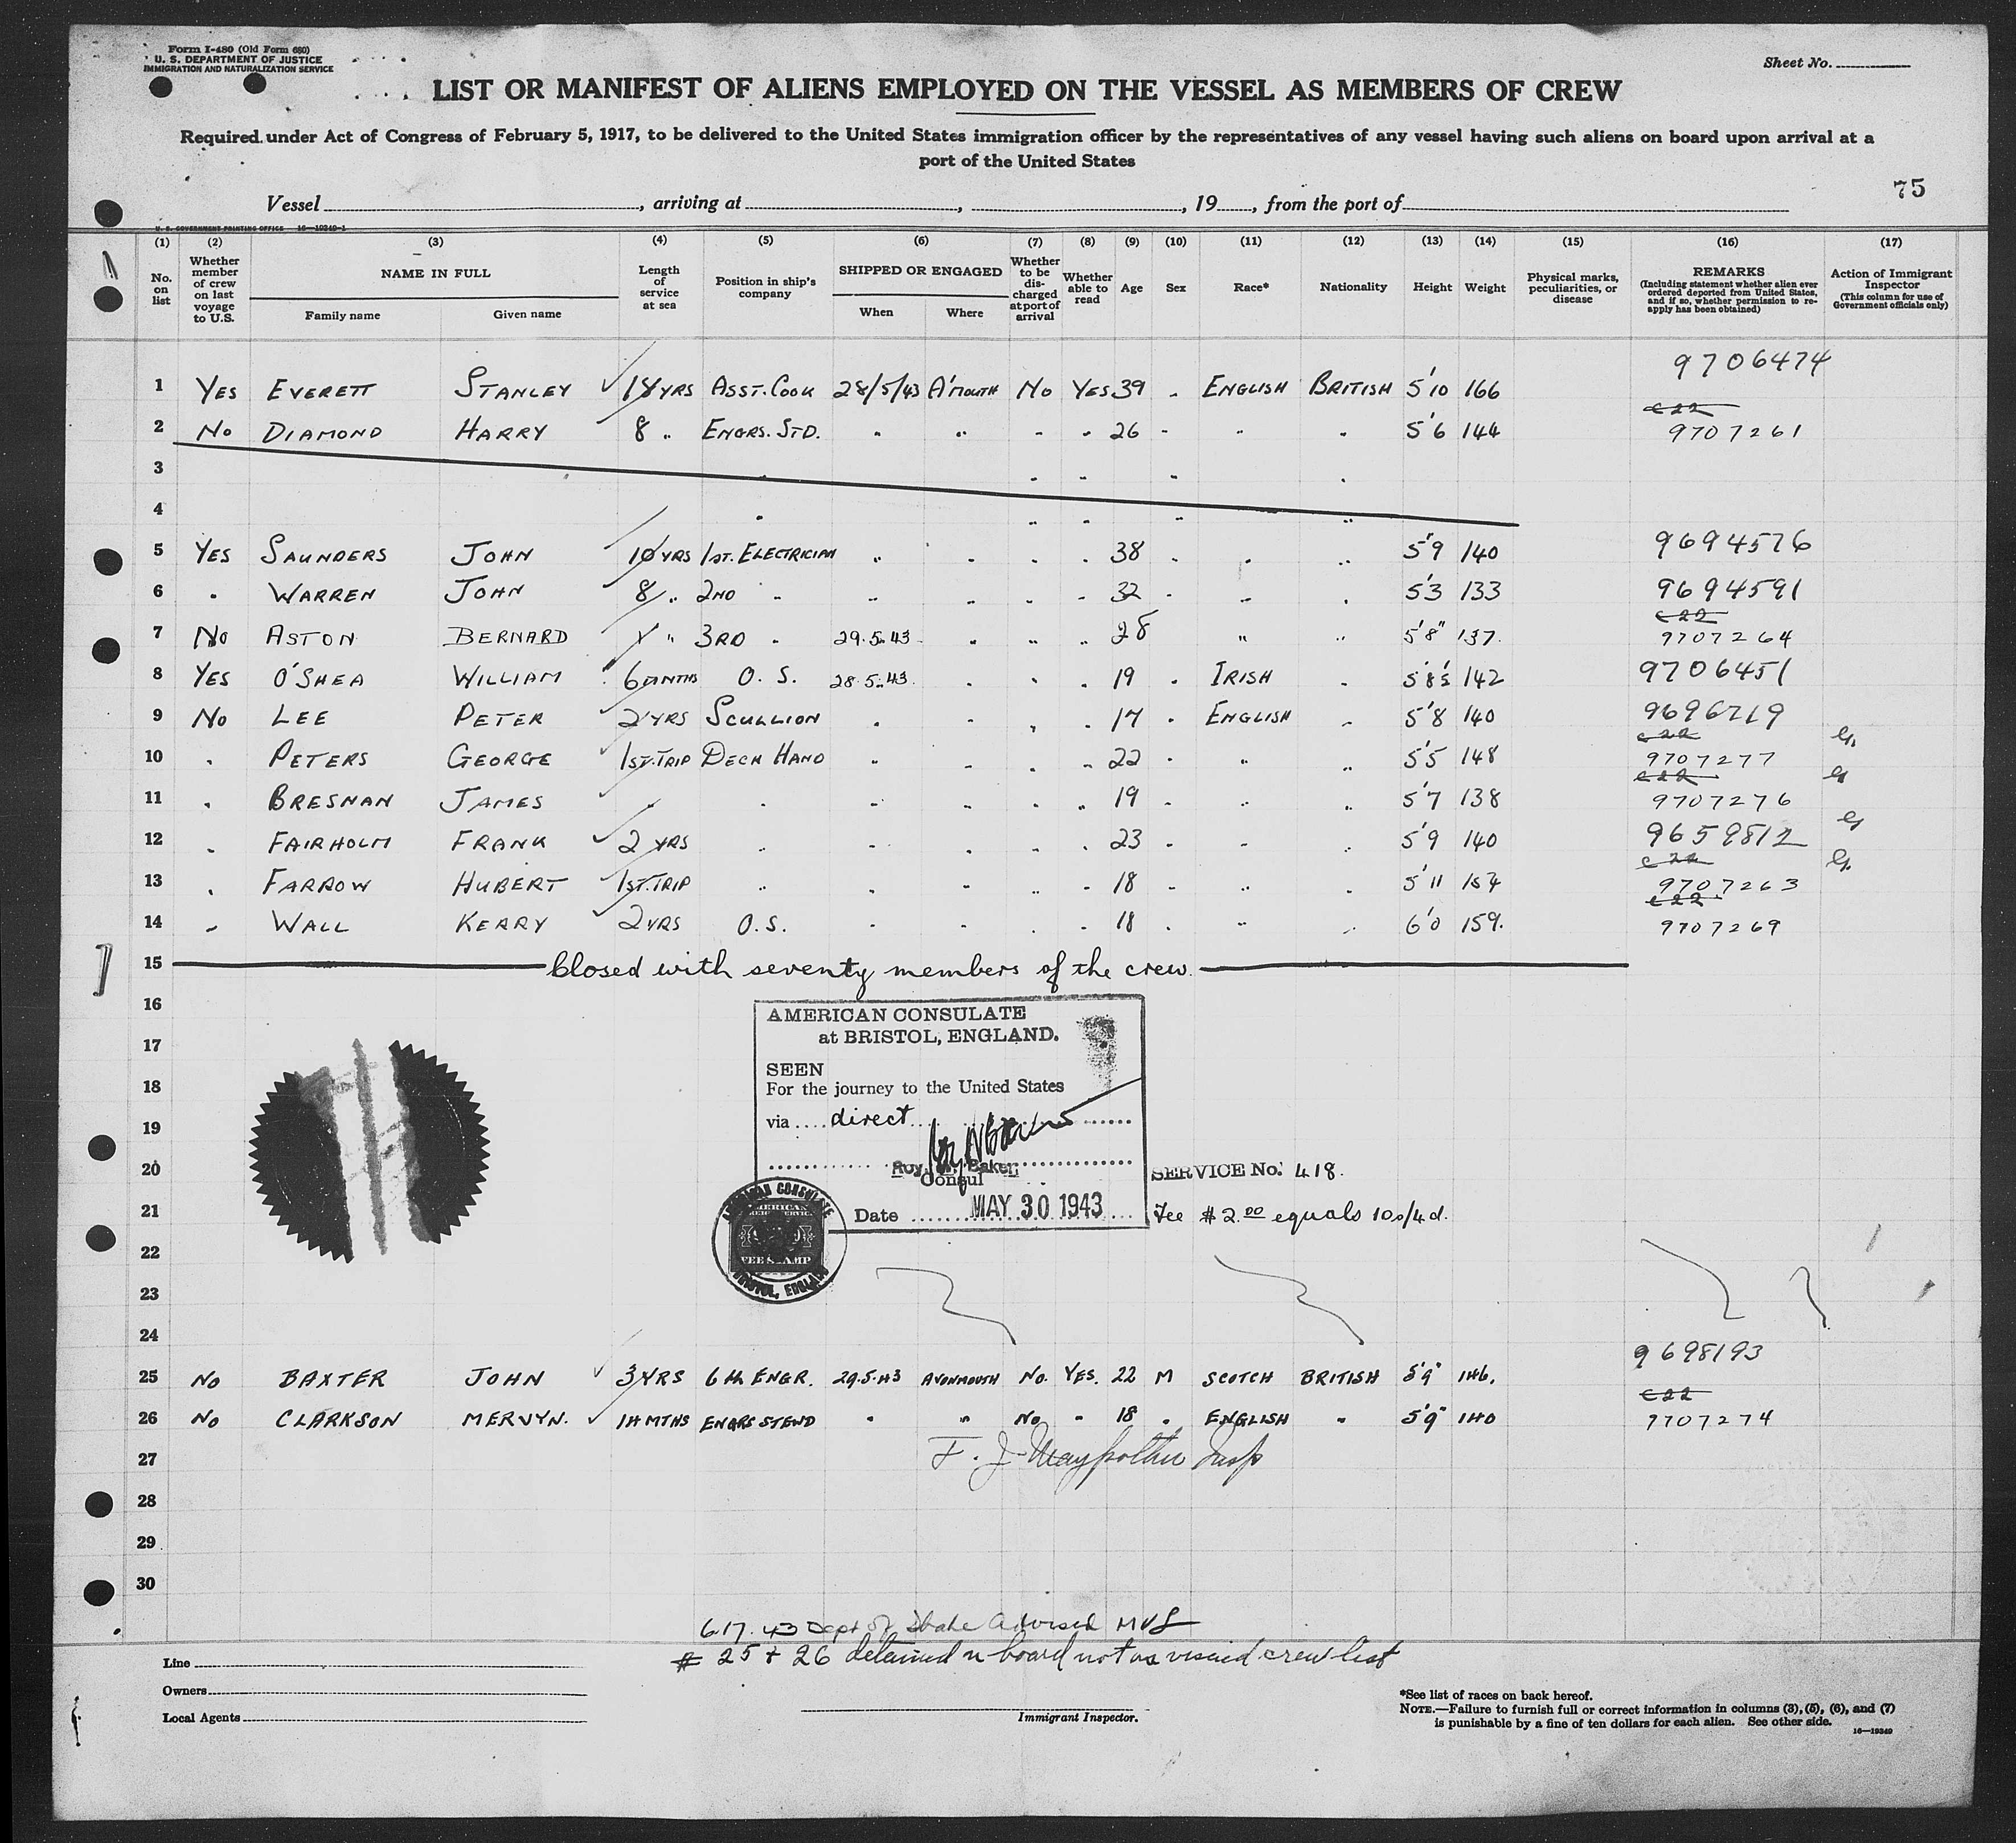 Form I-480 (Old Form 680)
U. S. DEPARTMENT OF JUSTICE
IMMIGRATION AND NATURALIZATION SERVICE
Sheet No.
LIST OR MANIFEST OF ALIENS EMPLOYED ON THE VESSEL AS MEMBERS OF CREW
Required under Act of Congress of February 5, 1917, to be delivered to the United States immigration officer by the representatives of any vessel having such aliens on board upon arrival at a
port of the United States
75
Vessel , arriving at , , 19 , from the port of
U. S. GOVERNMENT PRINTING OFFICE 16—19349-1
(1) (2) (3) (4) (5) (6) (7) (8) (9) (10) (11) (12) (13) (14) (15) (16) (17)
No. on list
Whether member of crew on last voyage to U.S.
NAME IN FULL
Family name Given name
Length of service at sea
Position in ship's company
SHIPPED OR ENGAGED
When Where
Whether to be discharged at port of arrival
Whether able to read
Age
Sex
Race*
Nationality
Height
Weight
Physical marks, peculiarities, or disease
REMARKS
(Including statement whether alien ever ordered deported from United States, and if so, whether permission to reapply has been obtained)
Action of Immigrant Inspector
(This column for use of Government officials only)
9706474
1 YES EVERETT STANLEY 18 YRS ASST. COOK 28/5/43 A'MOUTH NO YES 39 " ENGLISH BRITISH 5'10 166
c22
2 NO DIAMOND HARRY 8 " ENGRS. STD. " " " " 26 " " " 5'6 144 9707261
3 " " " " "
4 " " " " "
5 YES SAUNDERS JOHN 10 YRS 1ST. ELECTRICIAN " " " " 38 " " " 5'9 140 9694576
6 " WARREN JOHN 8 " 2ND " " " " " 32 " " " 5'3 133 9694591
c22
7 NO ASTON BERNARD " 3RD " 29.5.43 " " " 28 " " 5'8" 137. 9707264
8 YES O'SHEA WILLIAM 6 MNTHS O. S. 28.5.43. " " " 19 " IRISH " 5'8½ 142 9706451
9 NO LEE PETER 2 YRS SCULLION " " " " 17 " ENGLISH " 5'8 140 9696719
c22
10 " PETERS GEORGE 1ST. TRIP DECK HAND " " " " 22 " " " 5'5 148 9707277
c22
11 " BRESNAN JAMES " " " " " " 19 " " " 5'7 138 9707276
12 " FAIRHOLM FRANK 2 YRS " " " " " 23 " " " 5'9 140 9659812
c22
13 " FARROW HUBERT 1ST. TRIP " " " " " 18 " " " 5'11 157 9707263
c22
14 " WALL KERRY 2 YRS O.S. " " " " 18 " " " 6'0 159. 9707269
15 Closed with seventy members of the crew.
16
AMERICAN CONSULATE
at BRISTOL, ENGLAND.
17
SEEN
18
For the journey to the United States
19
via direct
20
Roy Baker
Consul
SERVICE No. 418.
21
Date MAY 30 1943
Fee $2.00 equals 10s/4d.
AMERICAN CONSULATE
AMERICAN
FEE STAMP
BRISTOL, ENGLAND
22
23
24
9698193
25 NO BAXTER JOHN 3 YRS 6th ENGR. 29.5.43 AVONMOUTH NO. YES. 22 M SCOTCH BRITISH 5'9" 146.
c22
26 NO CLARKSON MERVYN. 14 MTHS ENGRS STEWD " " NO " 18 " ENGLISH " 5'9" 140 9707274
27 F. J. Insp
28
29
30
6.17.43 Dept of State Advised MVS
# 25 + 26 detained on board not on visaed crew list
Line
Owners
Local Agents
Immigrant Inspector.
*See list of races on back hereof.
NOTE.—Failure to furnish full or correct information in columns (3), (5), (6), and (7)
is punishable by a fine of ten dollars for each alien. See other side.
16—19349